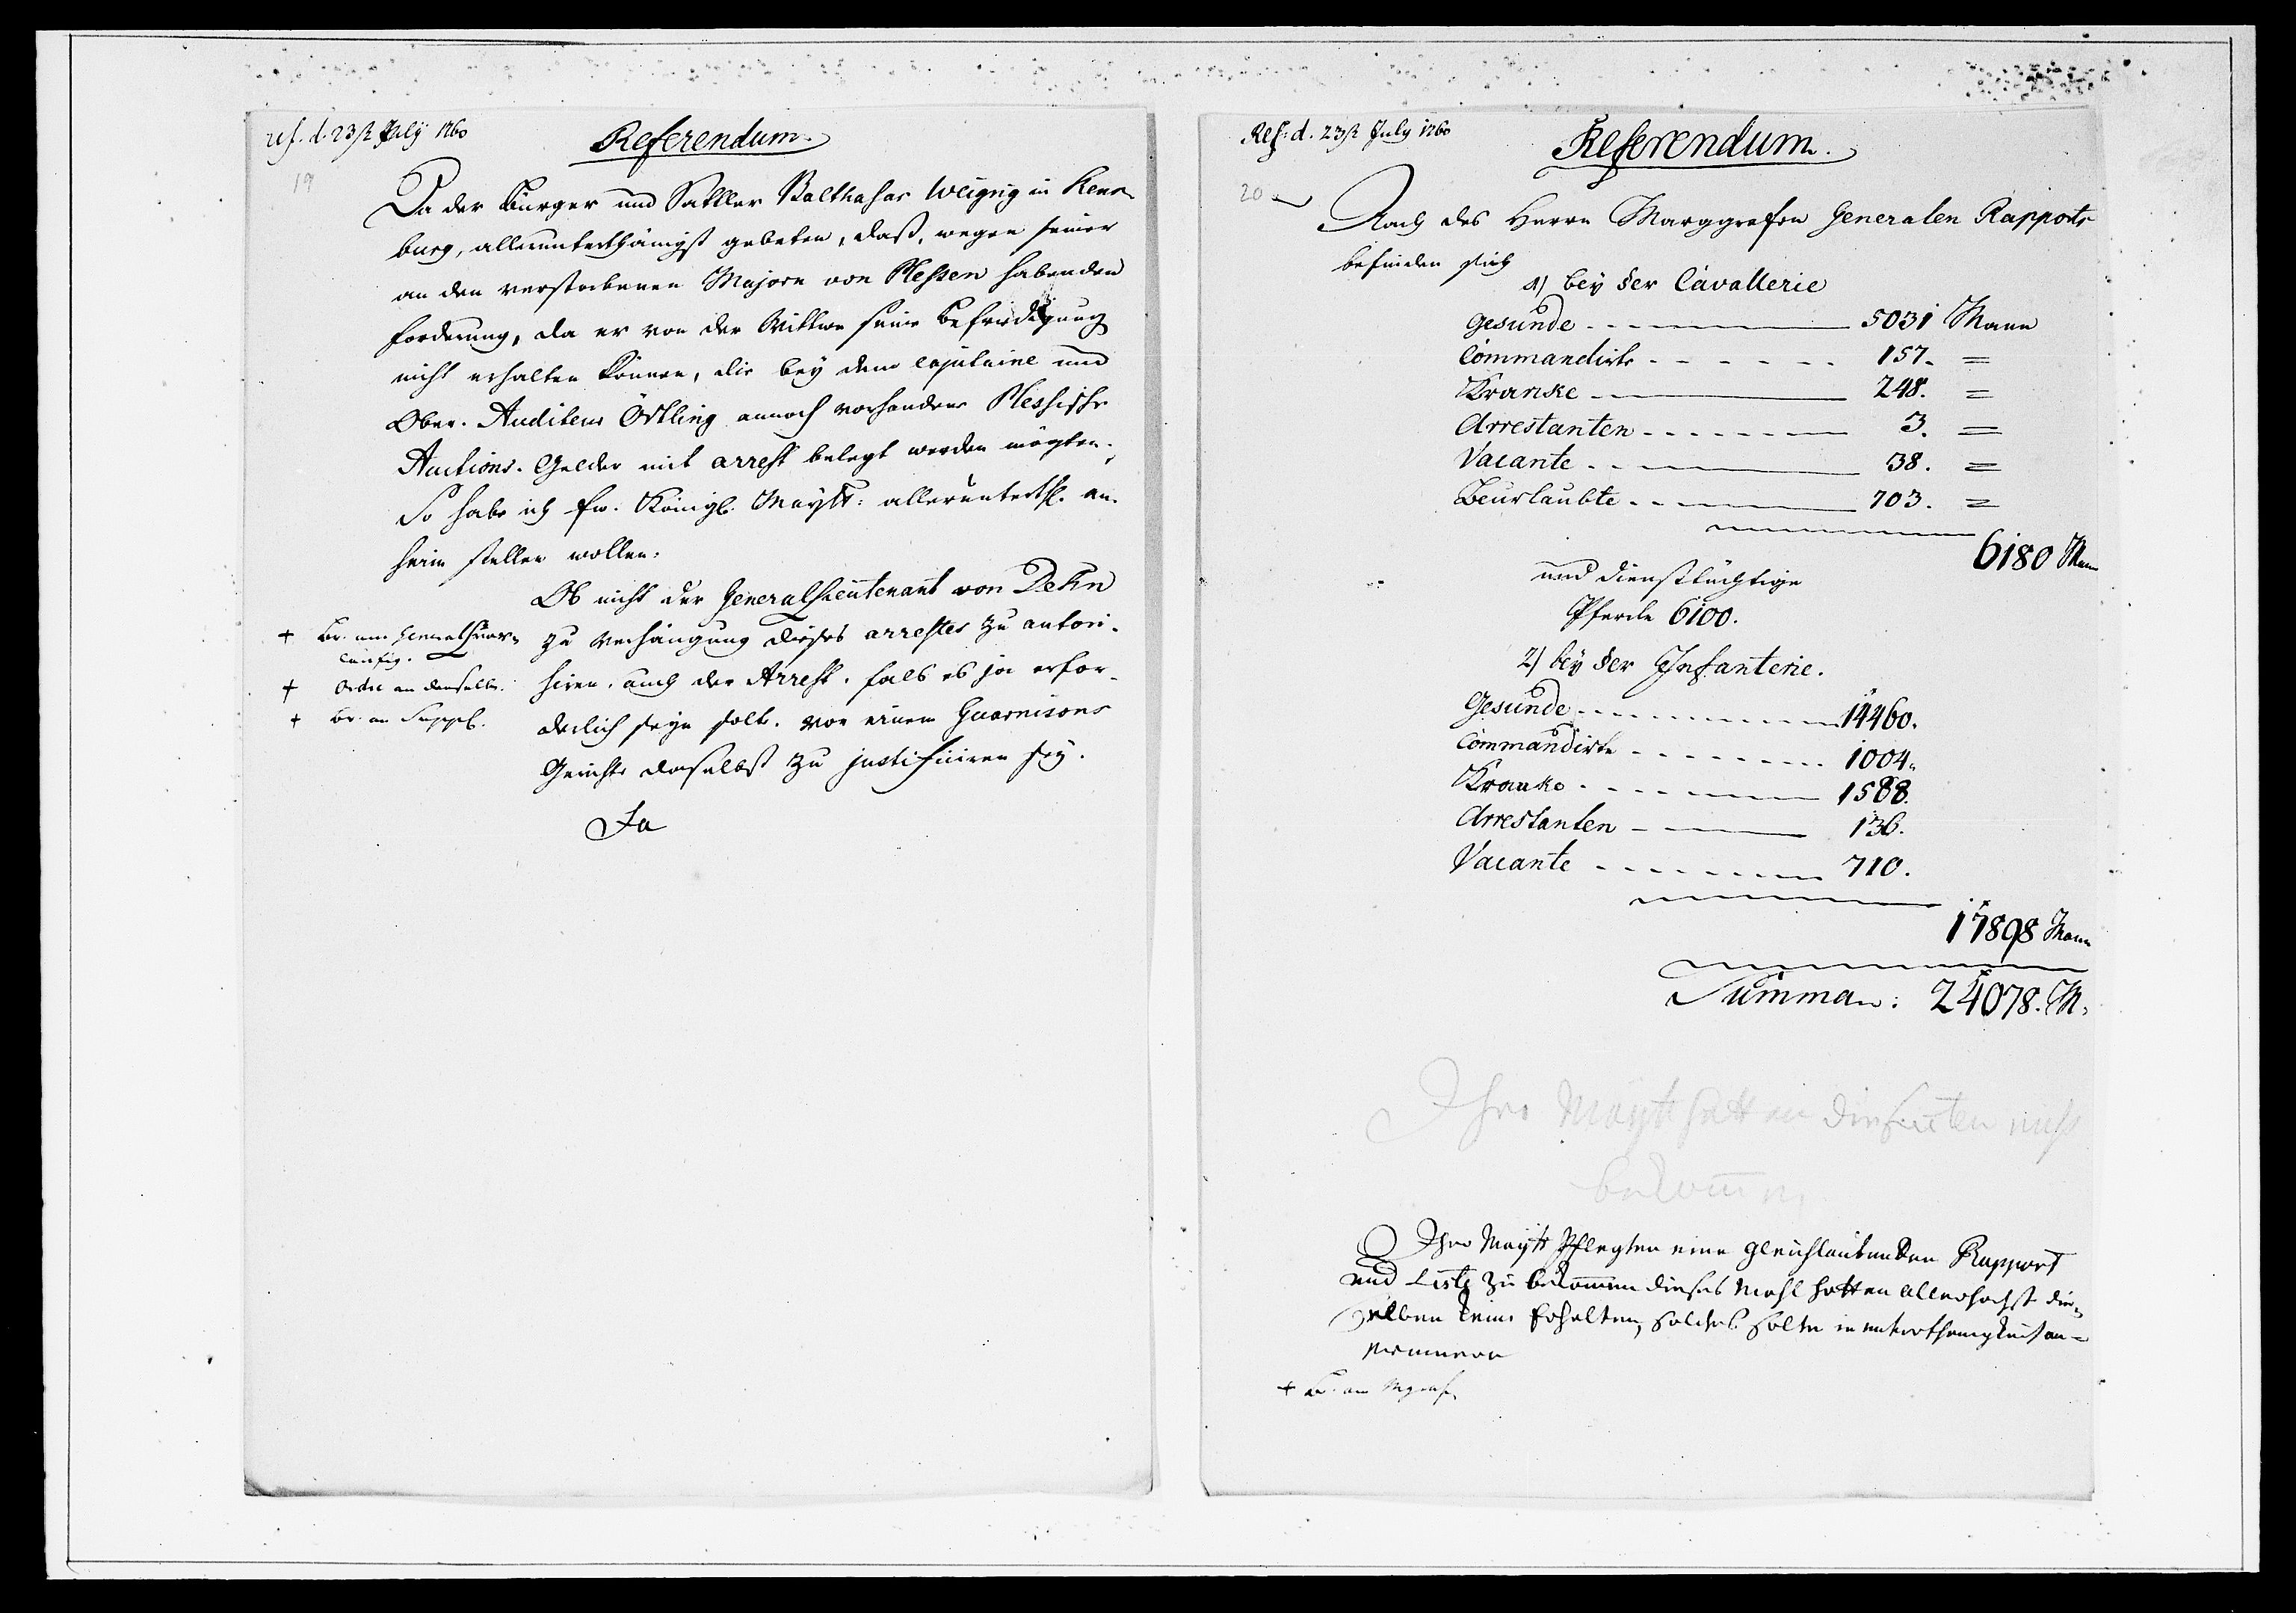 ref. d. 23st July 1760
Referendum.
19
Da der Bürger und Sattler Balthasar Weigrig in Rens-
burg, allerunterthänigst gebeten, daß, wegen seiner
an den verstorbenen Majorn von Plessen habenden
forderung, da er von der Wittwe seine Befriedigung
nicht erhalten können, die bey dem Capitaine und
Ober-Auditeur Östling annoch vorhandene Plessische
Auctions-Gelder mit arrest belegt werden mögten;
So habe ich Ew. Königl. Maytt: allerunterthl. an-
heim stellen wollen:
Ob nicht der GeneralLieutenant von Dehn
zu Verhängung dieses arrestes zu autori-
siren, auch der Arrest, fals es ja erfor-
derlich seyn solte, vor einem Guarnisons
Gerichte daselbst zu justificiren sey.
+ Br. am
läufig.
+ Ordre an denselb.
+ Br. an Suppl.
Ja
Ref: d. 23st July 1760
Referendum.
20
Nach des Herrn Marggrafen Generalen Rapporte
befinden sich
1) bey der Cavallerie
Gesunde 5031 Mann
Commandirte 157. =
Kranke 248. =
Arrestanten 3. =
Vacante 38. =
Beurlaubte 703. =
6180 Mann
und diensttüchtige
Pferde 6100.
2) bey der Infanterie.
Gesunde 14460.
Commandirte 1004.
Kranke 1588.
Arrestanten 136.
Vacante 710.
17898 Mann
Summa: 24078. M.
Ihro Maytt hatten nicht
bekommen
Ihro Maytt Pflegten eine gleichlautenden Rapport
und Liste zu bekommen dieses Mahl hatten allerhöchst die-
selben keine Erhalten, solches solte in unterthänigkeit an-
+ Br. am Mgraf.